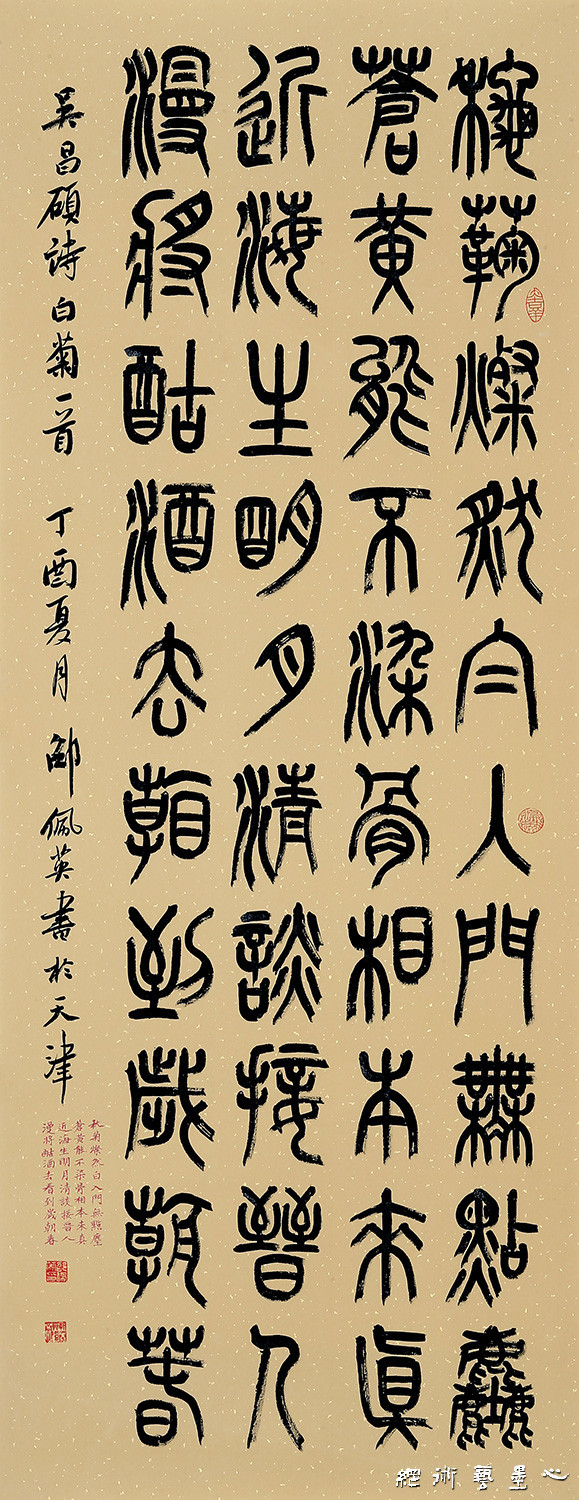 秋菊燦然白入門無點塵
蒼黃能不染骨相本來真
近海生明月清談接晉人
漫將酤酒去看到歲朝春
吳昌碩詩白菊一首 丁酉夏月 邵佩英書於天津
秋菊燦然白入門無點塵
蒼黃能不染骨相本來真
近海生明月清談接晉人
漫將酤酒去看到歲朝春
心墨藝術網